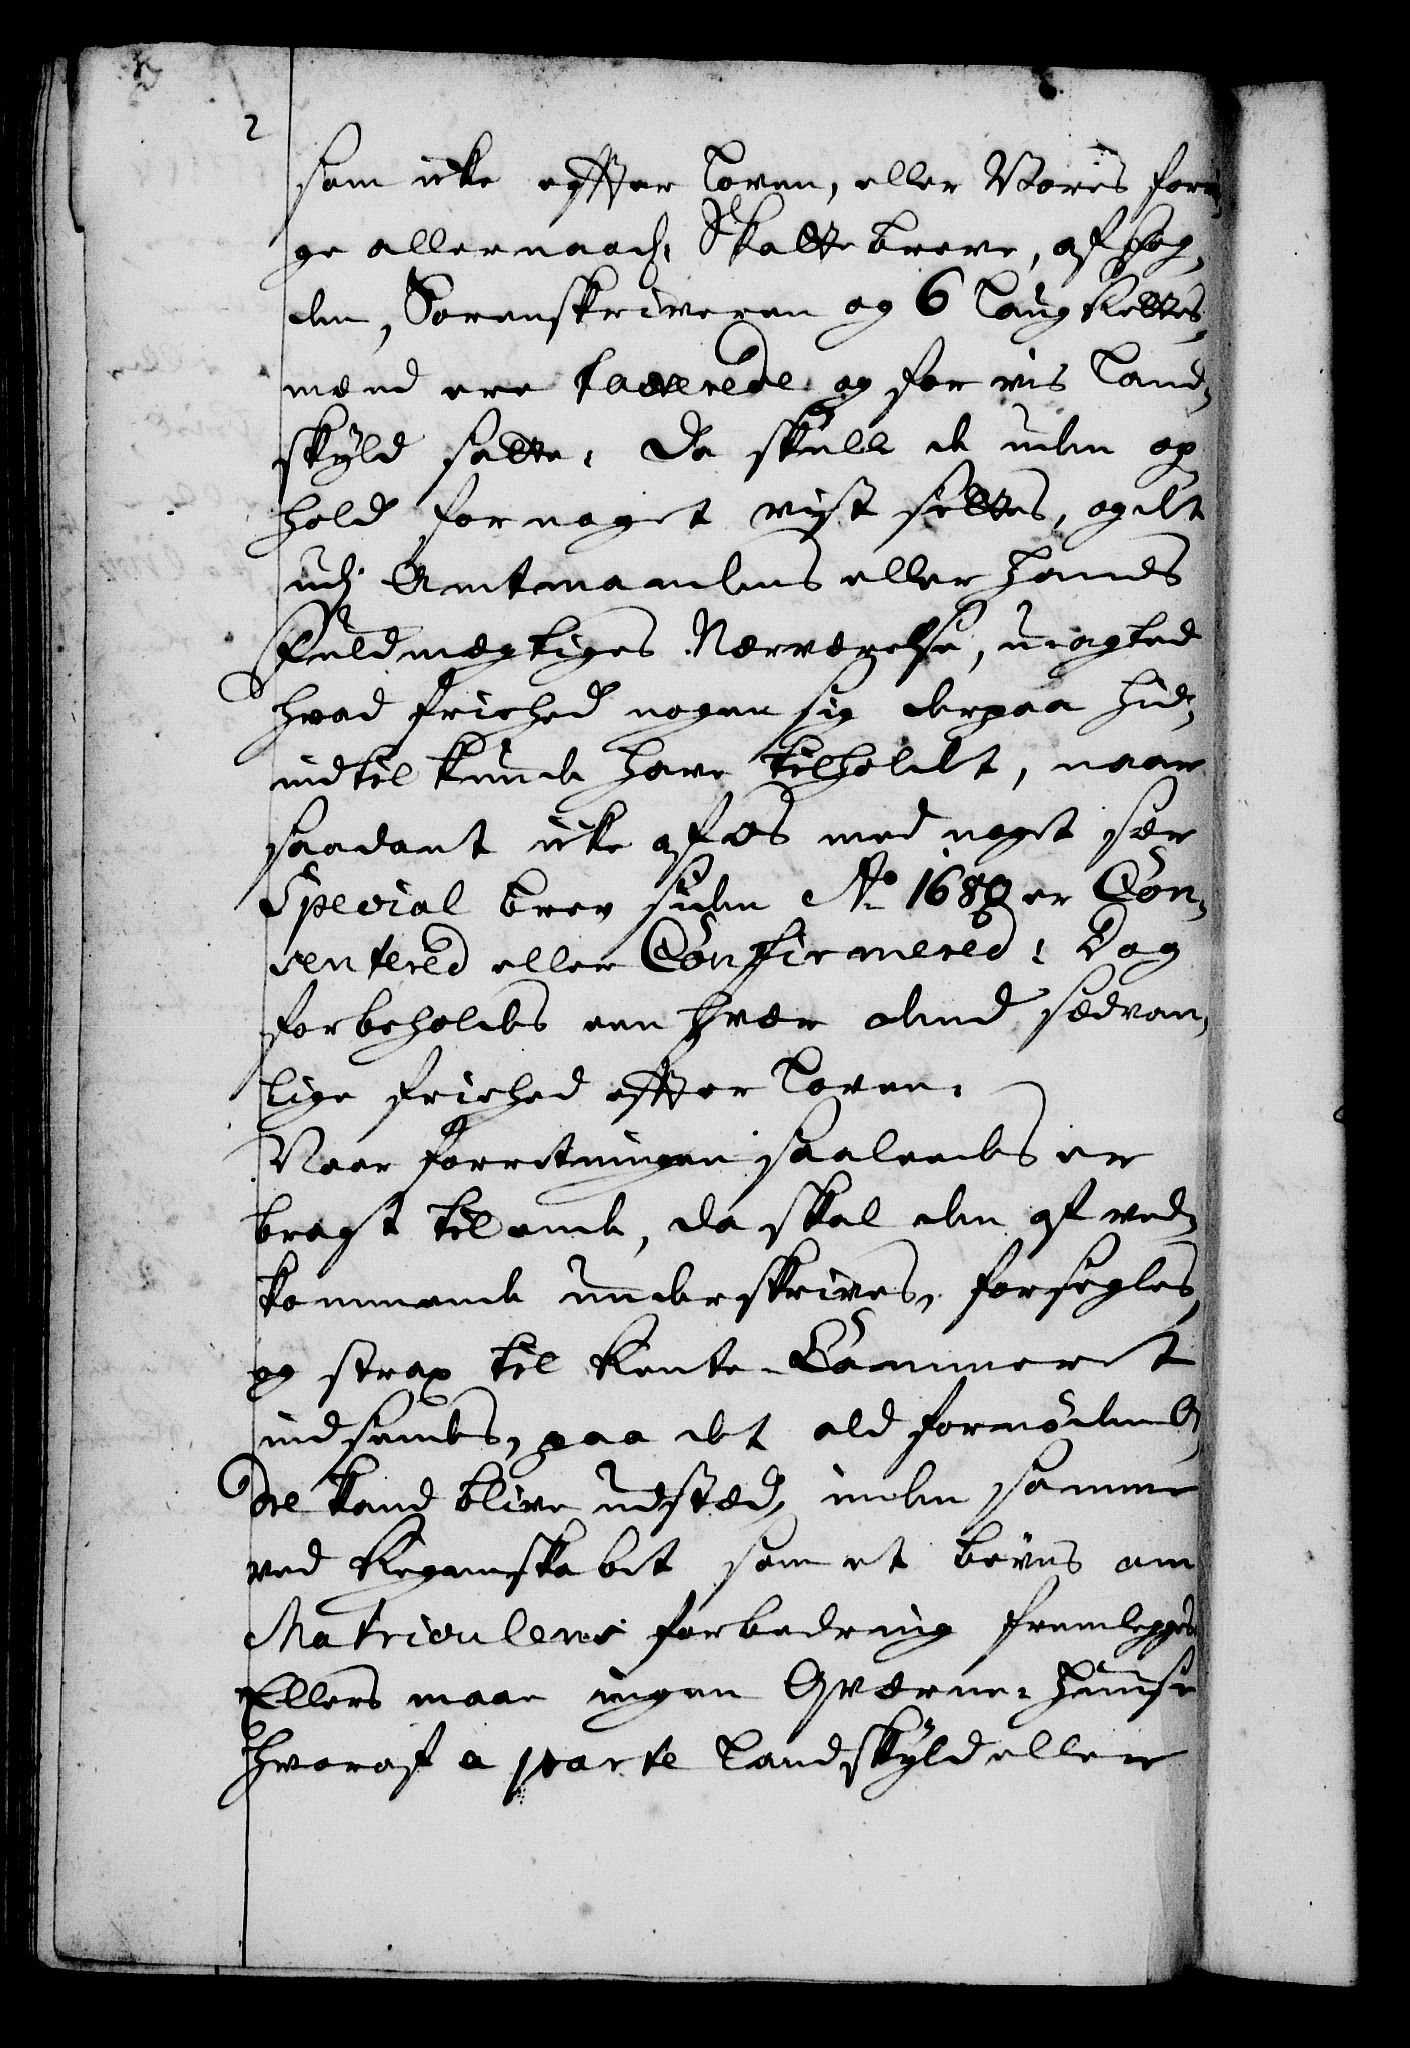 2
som icke effter Loven, eller Voris forri,
ge allernaad: Skatte breve, af Fog,
den, Sorenskriveren og 6 Laug Rettes,
mænd ere taxerede og for vis Land,
skyld satte, da skulle de uden op,
hold for noget vist settes, og det
udj Amtmandens eller hands
Fuldmegtiges Nærværelse, uagted
hvad friehed nogen sig derpaa hid,
indtil kunde have tilholdt, naar
saadant icke af os med noget sær
Special brev siden Ao 1680 er Con,
sentered eller Confirmered; Dog
forbeholdes een hver dend sædvan,
lige friehed effter Loven.
Naar forretningen saaledes er
bragt til ende, da skal den af ved,
kommende underskrives, forsegles,
og strax til Rente-Cammeret
indsendes, paa det ald fornöden Or,
dre kand blive udstæd, inden samme
ved Regenskabet som et beviis om
Matriculens forbedring fremlegges
Ellers maae ingen Qværne-Huuse
hvoraf a parte Landskyld eller